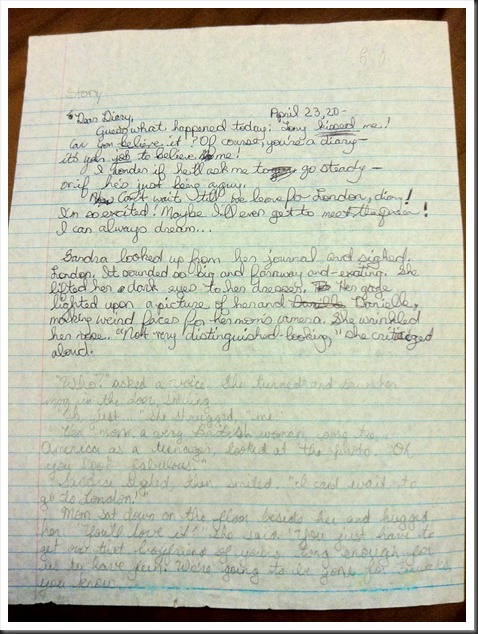 Story
"Dear Diary, April 23, 20-
Guess what happened today! Tony kissed me!
Can you believe it? Of course, you're a diary—
it's your job to believe me!
I wonder if he'll ask me to go steady—
or if he's just being a guy.
Can't wait till we leave for London, diary!
I'm so excited! Maybe I'll even get to meet the Queen!
I can always dream...
Sandra looked up from her journal and sighed.
London. It sounded so big and faraway and exciting. She
lifted her dark eyes to her dresser. Her gaze
lighted upon a picture of her and Danielle,
making weird faces for her mom's camera. She wrinkled
her nose. "Not very distinguished-looking," she critisized
aloud.
"Who?" asked a voice. She turned and saw her
mom in the door, smiling.
"Oh just..." she shrugged, "me."
Her mom, a very British woman, came to
America as a teenager, looked at the photo. "Oh,
you look fabulous."
Sandra sighed, then smiled. "I can't wait to
go to London!"
Mom sat down on the floor beside her and hugged
her. "You'll love it," she said. "You just have to
get over that boyfriend of yours long enough for
us to have fun. We're going to be gone for two weeks,
you know.